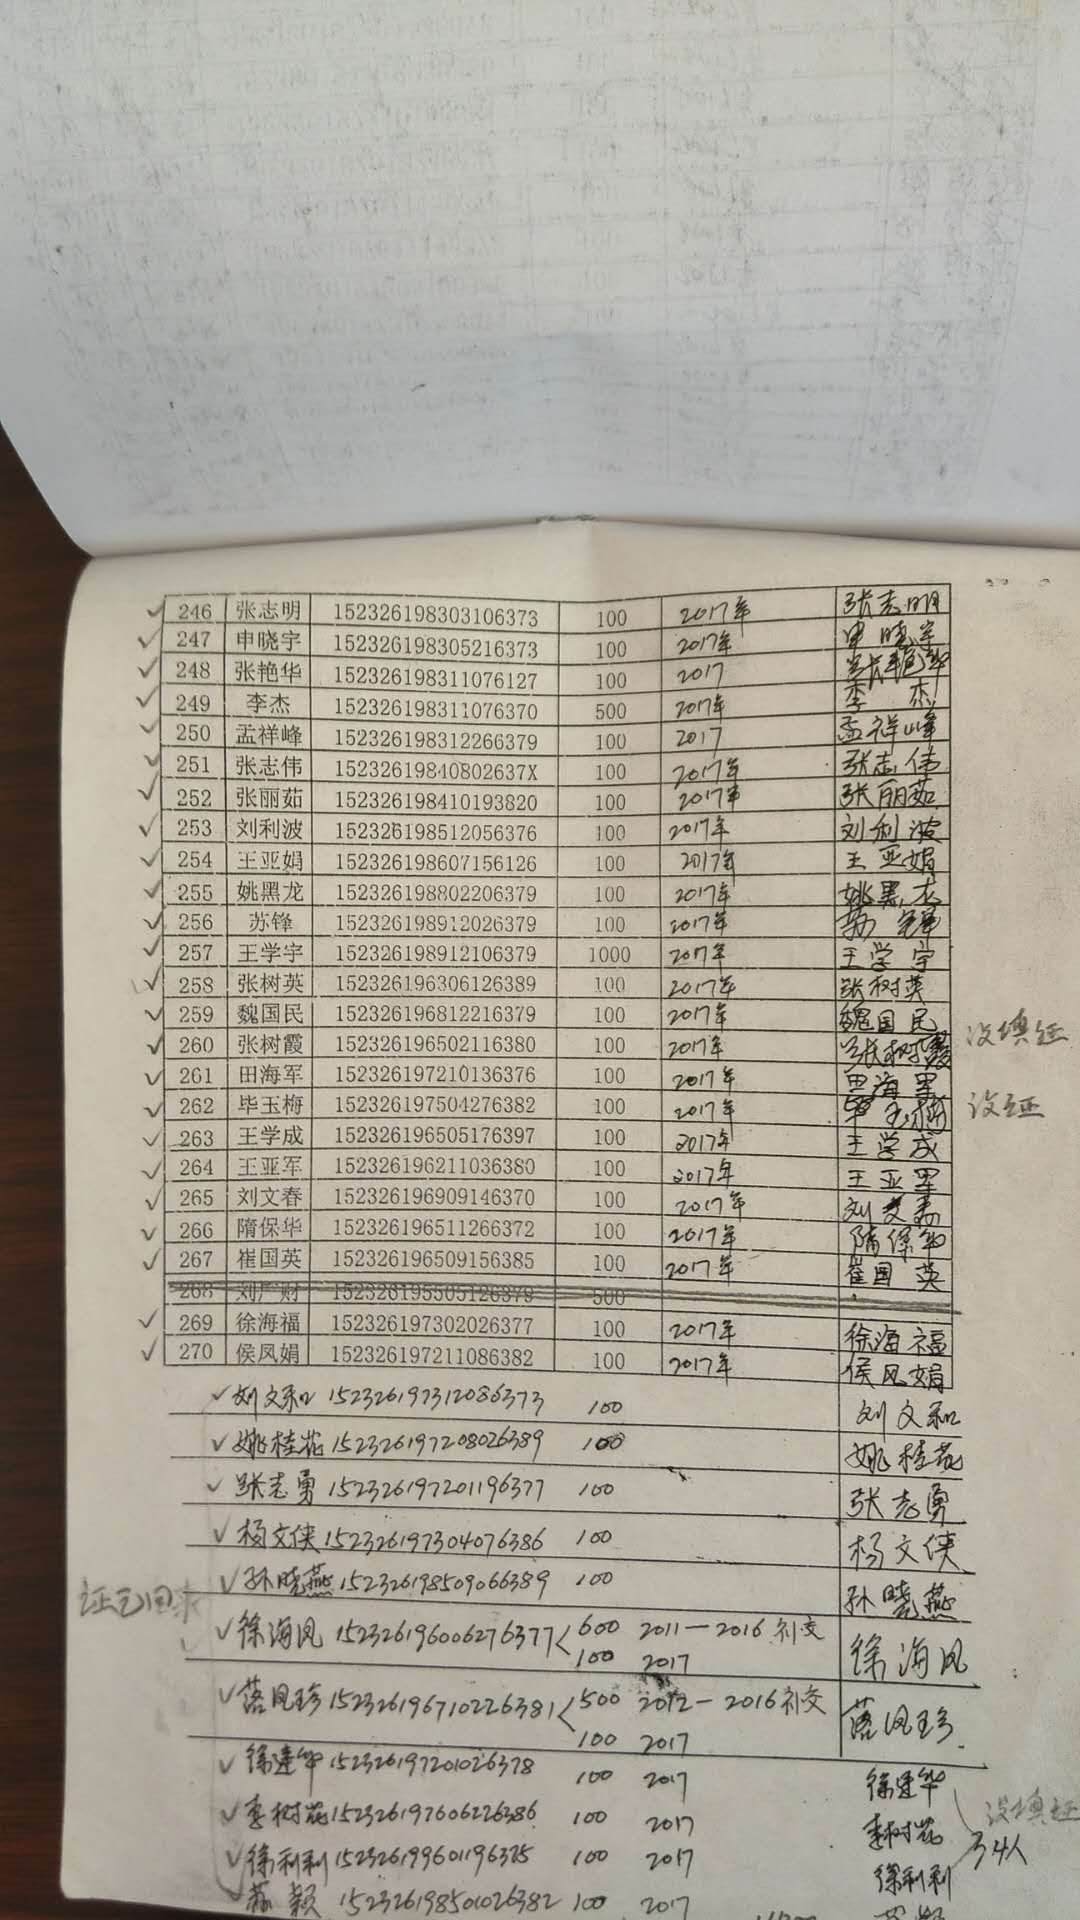 246 张志明 152326198303106373 100 2017年 张志明
247 申晓宇 152326198305216373 100 2017年 申晓宇
248 张艳华 152326198311076127 100 2017 张艳华
249 李杰 152326198311076370 500 2017年 李杰
250 孟祥峰 152326198312266379 100 2017 孟祥峰
251 张志伟 15232619840802637X 100 2017年 张志伟
252 张丽茹 152326198410193820 100 2017年 张丽茹
253 刘利波 152326198512056376 100 2017年 刘利波
254 王亚娟 152326198607156126 100 2017年 王亚娟
255 姚黑龙 152326198802206379 100 2017年 姚黑龙
256 苏锋 152326198912026379 100 2017年 苏锋
257 王学宇 152326198912106379 1000 2017年 王学宇
258 张树英 152326196306126389 100 2017年 张树英
259 魏国民 152326196812216379 100 2017年 魏国民
260 张树霞 152326196502116380 100 2017年 张树霞 没填证
261 田海军 152326197210136376 100 2017年 田海军
262 毕玉梅 152326197504276382 100 2017年 毕玉梅 没证
263 王学成 152326196505176397 100 2017年 王学成
264 王亚军 152326196211036380 100 2017年 王亚军
265 刘文春 152326196909146370 100 2017年 刘文春
266 隋保华 152326196511266372 100 2017年 隋保华
267 崔国英 152326196509156385 100 2017年 崔国英
268 刘广财 152326195505126379 500
269 徐海福 152326197302026377 100 2017年 徐海福
270 侯凤娟 152326197211086382 100 2017年 侯凤娟
刘文和 152326197312086373 100 刘文和
姚桂花 152326197208026389 100 姚桂花
张志勇 152326197201196377 100 张志勇
杨文侠 152326197304076386 100 杨文侠
孙晓燕 152326198509066389 100 孙晓燕
证已回来
徐海凤 152326196006276377 600 2011-2016补交 徐海凤
100 2017
落凤珍 152326196710226381 500 2012-2016补交 落凤珍
100 2017
徐建华 152326197201026378 100 2017 徐建华
李树花 152326197606226386 100 2017 李树花 没填证
徐利利 152326199601196325 100 2017 徐利利 34人
苏颖 152326198501026382 100 2017